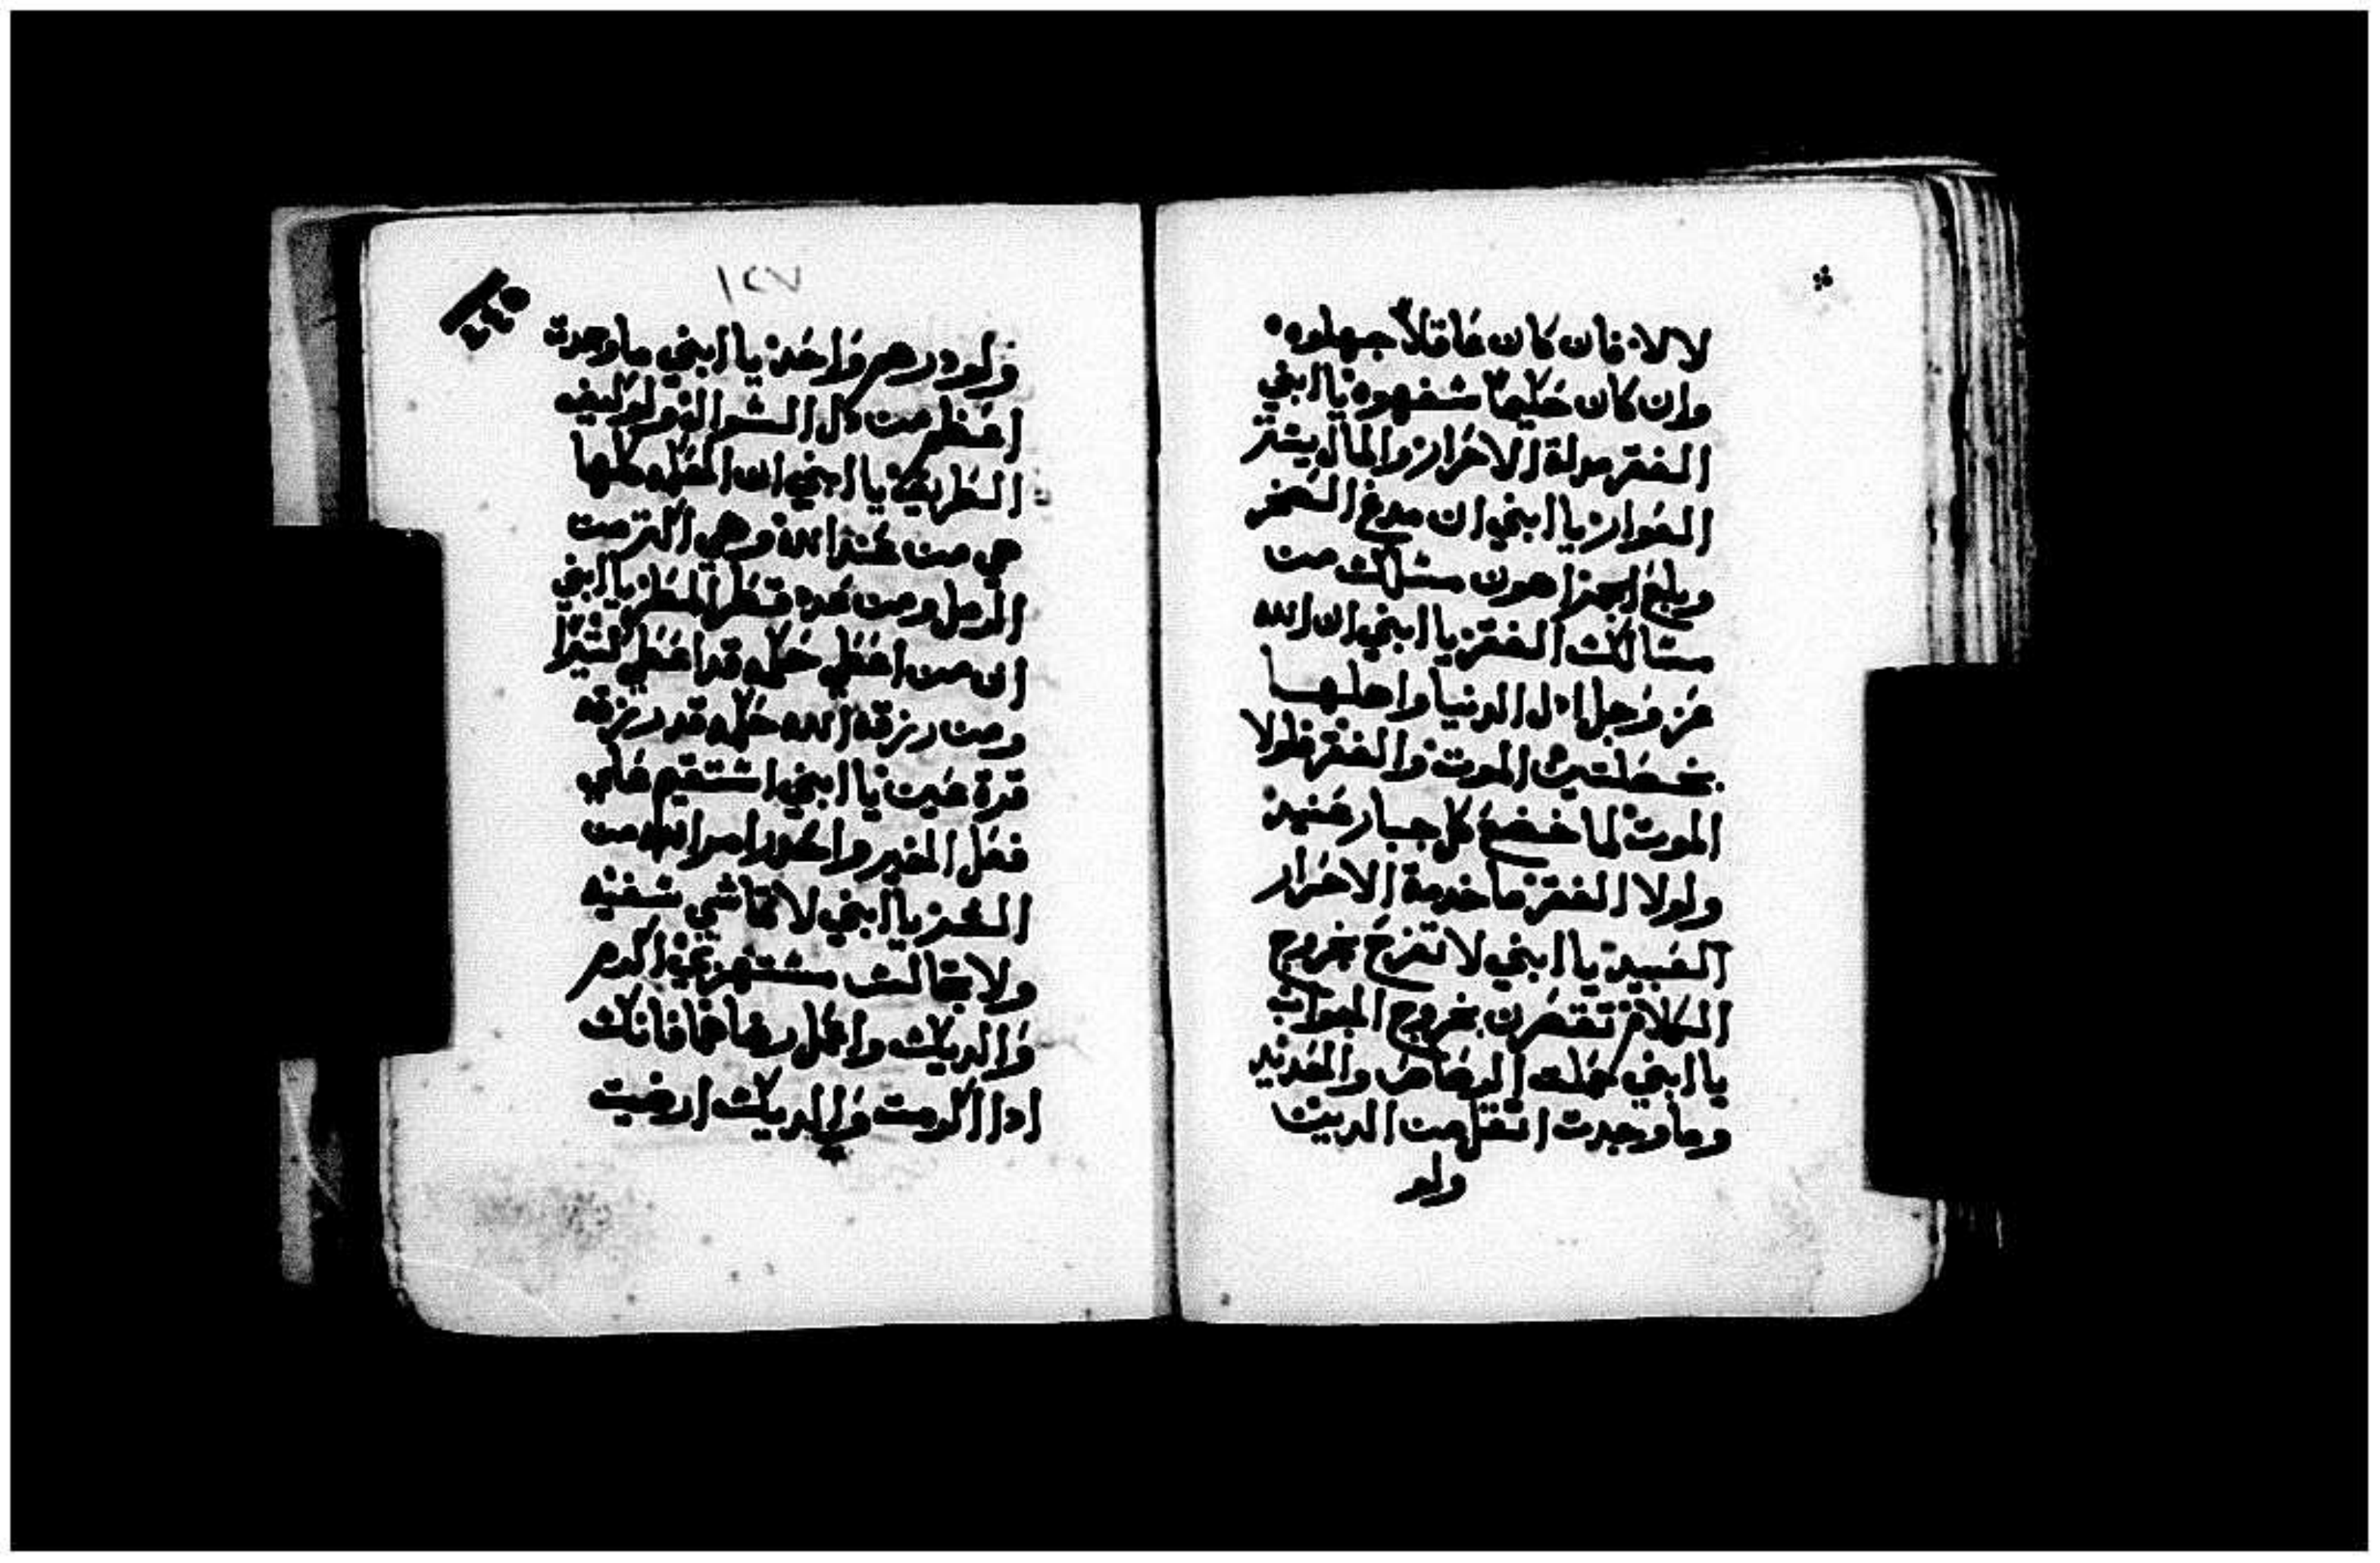 لالا فان كان عاقلاً جهلوه
وان كان حكيماً شفهوه يا ابني
الفقر مدلة الاحرار والمال يشتر
العوار يا ابني ان مدغ الصخر
وبلع اهون مسالك من
مسالك الفقر يا ابني ان الله
عز وجل ادل الدنيا واهلها
بخصلتين الموت والفقر فلولا
الموت لما خضع كل جبار عنيد
ولولا الفقر ما خدمة الاحرار
العبيد يا ابني لا تفزع بخروج
الكلام تقتصرن بخروج الجواب
يا ابني حملت الرصاص والحديد
وما وجدت اتقل من الدين
ولو
١٢٧
ولو درهم واحد يا ابني ما وجدت
اعظم من كل الشر الا
الطريق يا ابني ان كلها
هي من عند الله وهي اكتر من
الرمل ومن عدد قطر المطر يا ابني
ان من اعطي حكمه قد اعطي كثيرا
ومن رزقه الله حكمه قد رزقه
قرة عين يا ابني اشتقيم علي
فعل الخير امر الله من
يا ابني لا تماشي شفيه
ولا تجالس مشتهزي اكرم
والديك واعمل رضاهما فانك
ادا اكرمت والديك ارضيت